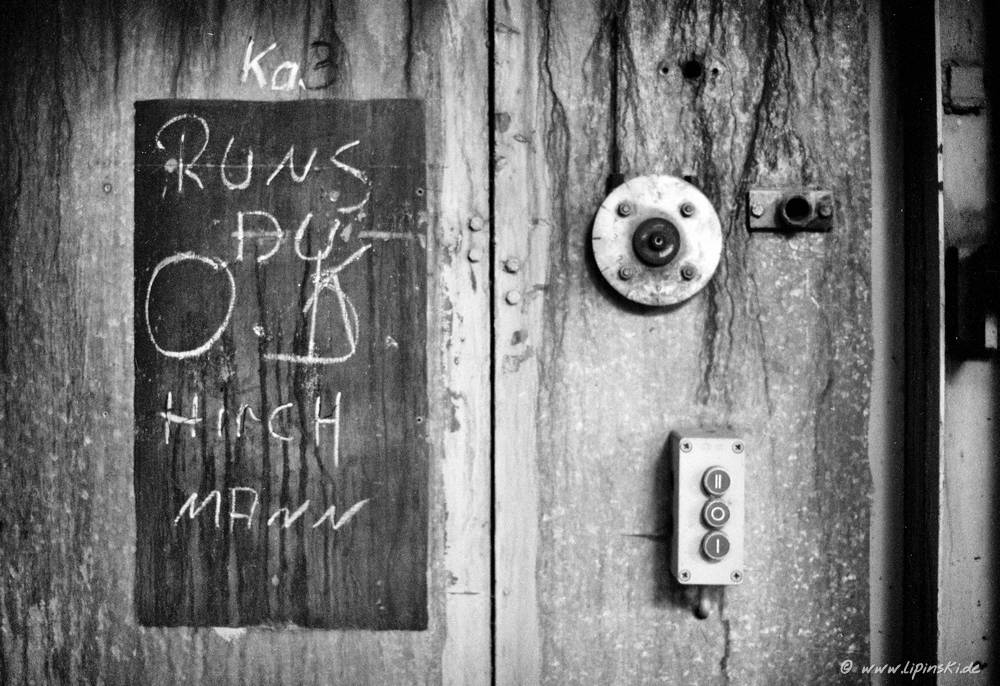 Ka3
RUNS
DY
O.K
HIrCH
MANN
II
O
I
© www.lipinski.de